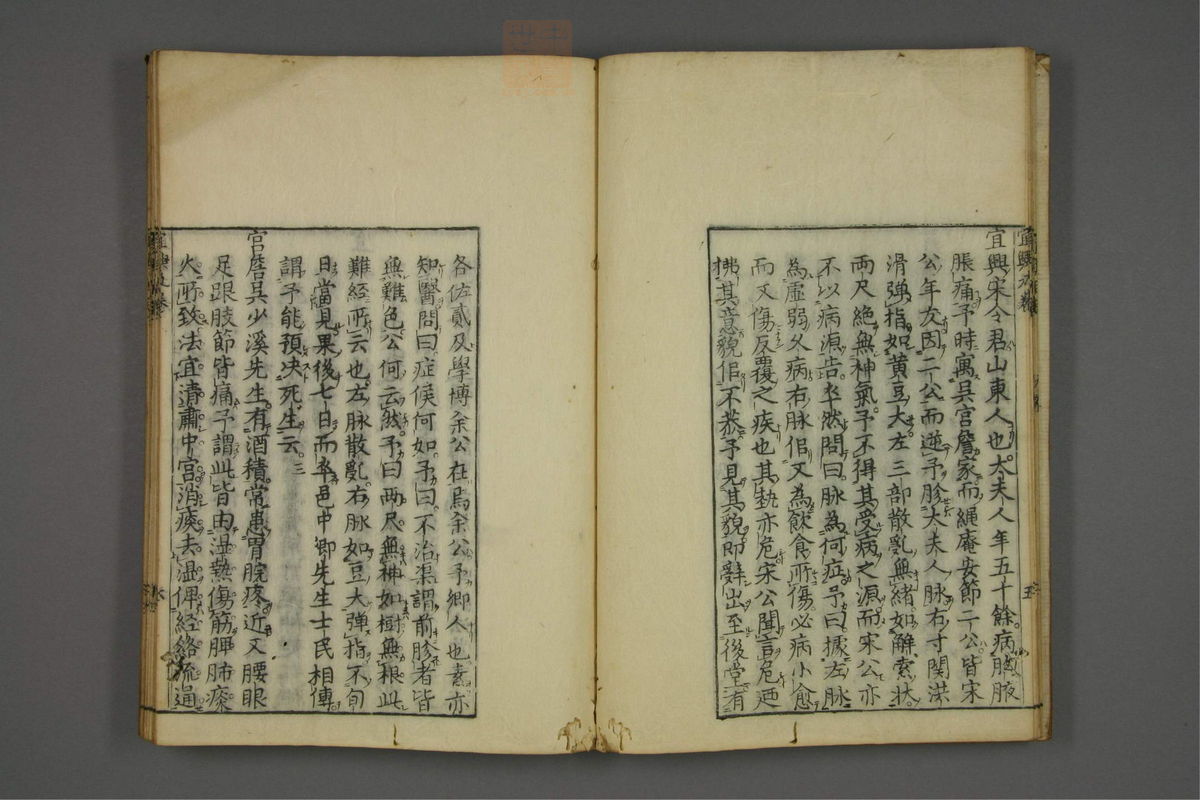 宜興宋令君山東人也太夫人年五十餘病臍腋
脹痛予時寓吳宮詹家而繩庵安節二公皆宋
公年友因二公而逆予胗太夫人脉右寸関洪
滑弹指如黄豆大左三部散亂無緒如解索狀
两尺絶無神氣予不得其受病之源而宋公亦
不以病源告卒然問曰脉為何症予曰據左脉
為虚弱久病右脉佀又為飲食所傷必病小愈
而又傷反覆之疾也其埶亦危宋公聞言危迺
拂其意貌佀不恭予見其貌即辭出至後堂有
各佐貳及學博余公在焉余公予鄉人也素亦
知醫問曰症候何如予曰不治渠謂前胗者皆
無難色公何云然予曰两尺無神如樹無根此
難經所云也左脉散亂右脉如豆大弹指不旬
日當見果後七日而卒邑中鄉先生士民相傳
謂予能預决死生云
宫詹吴少溪先生有酒積常患胃脘疼近又腰眼
足跟肢節皆痛予謂此皆由湿熱傷筋脾肺痰
火所致法宜清肅中宫消痰去湿俾経絡流通